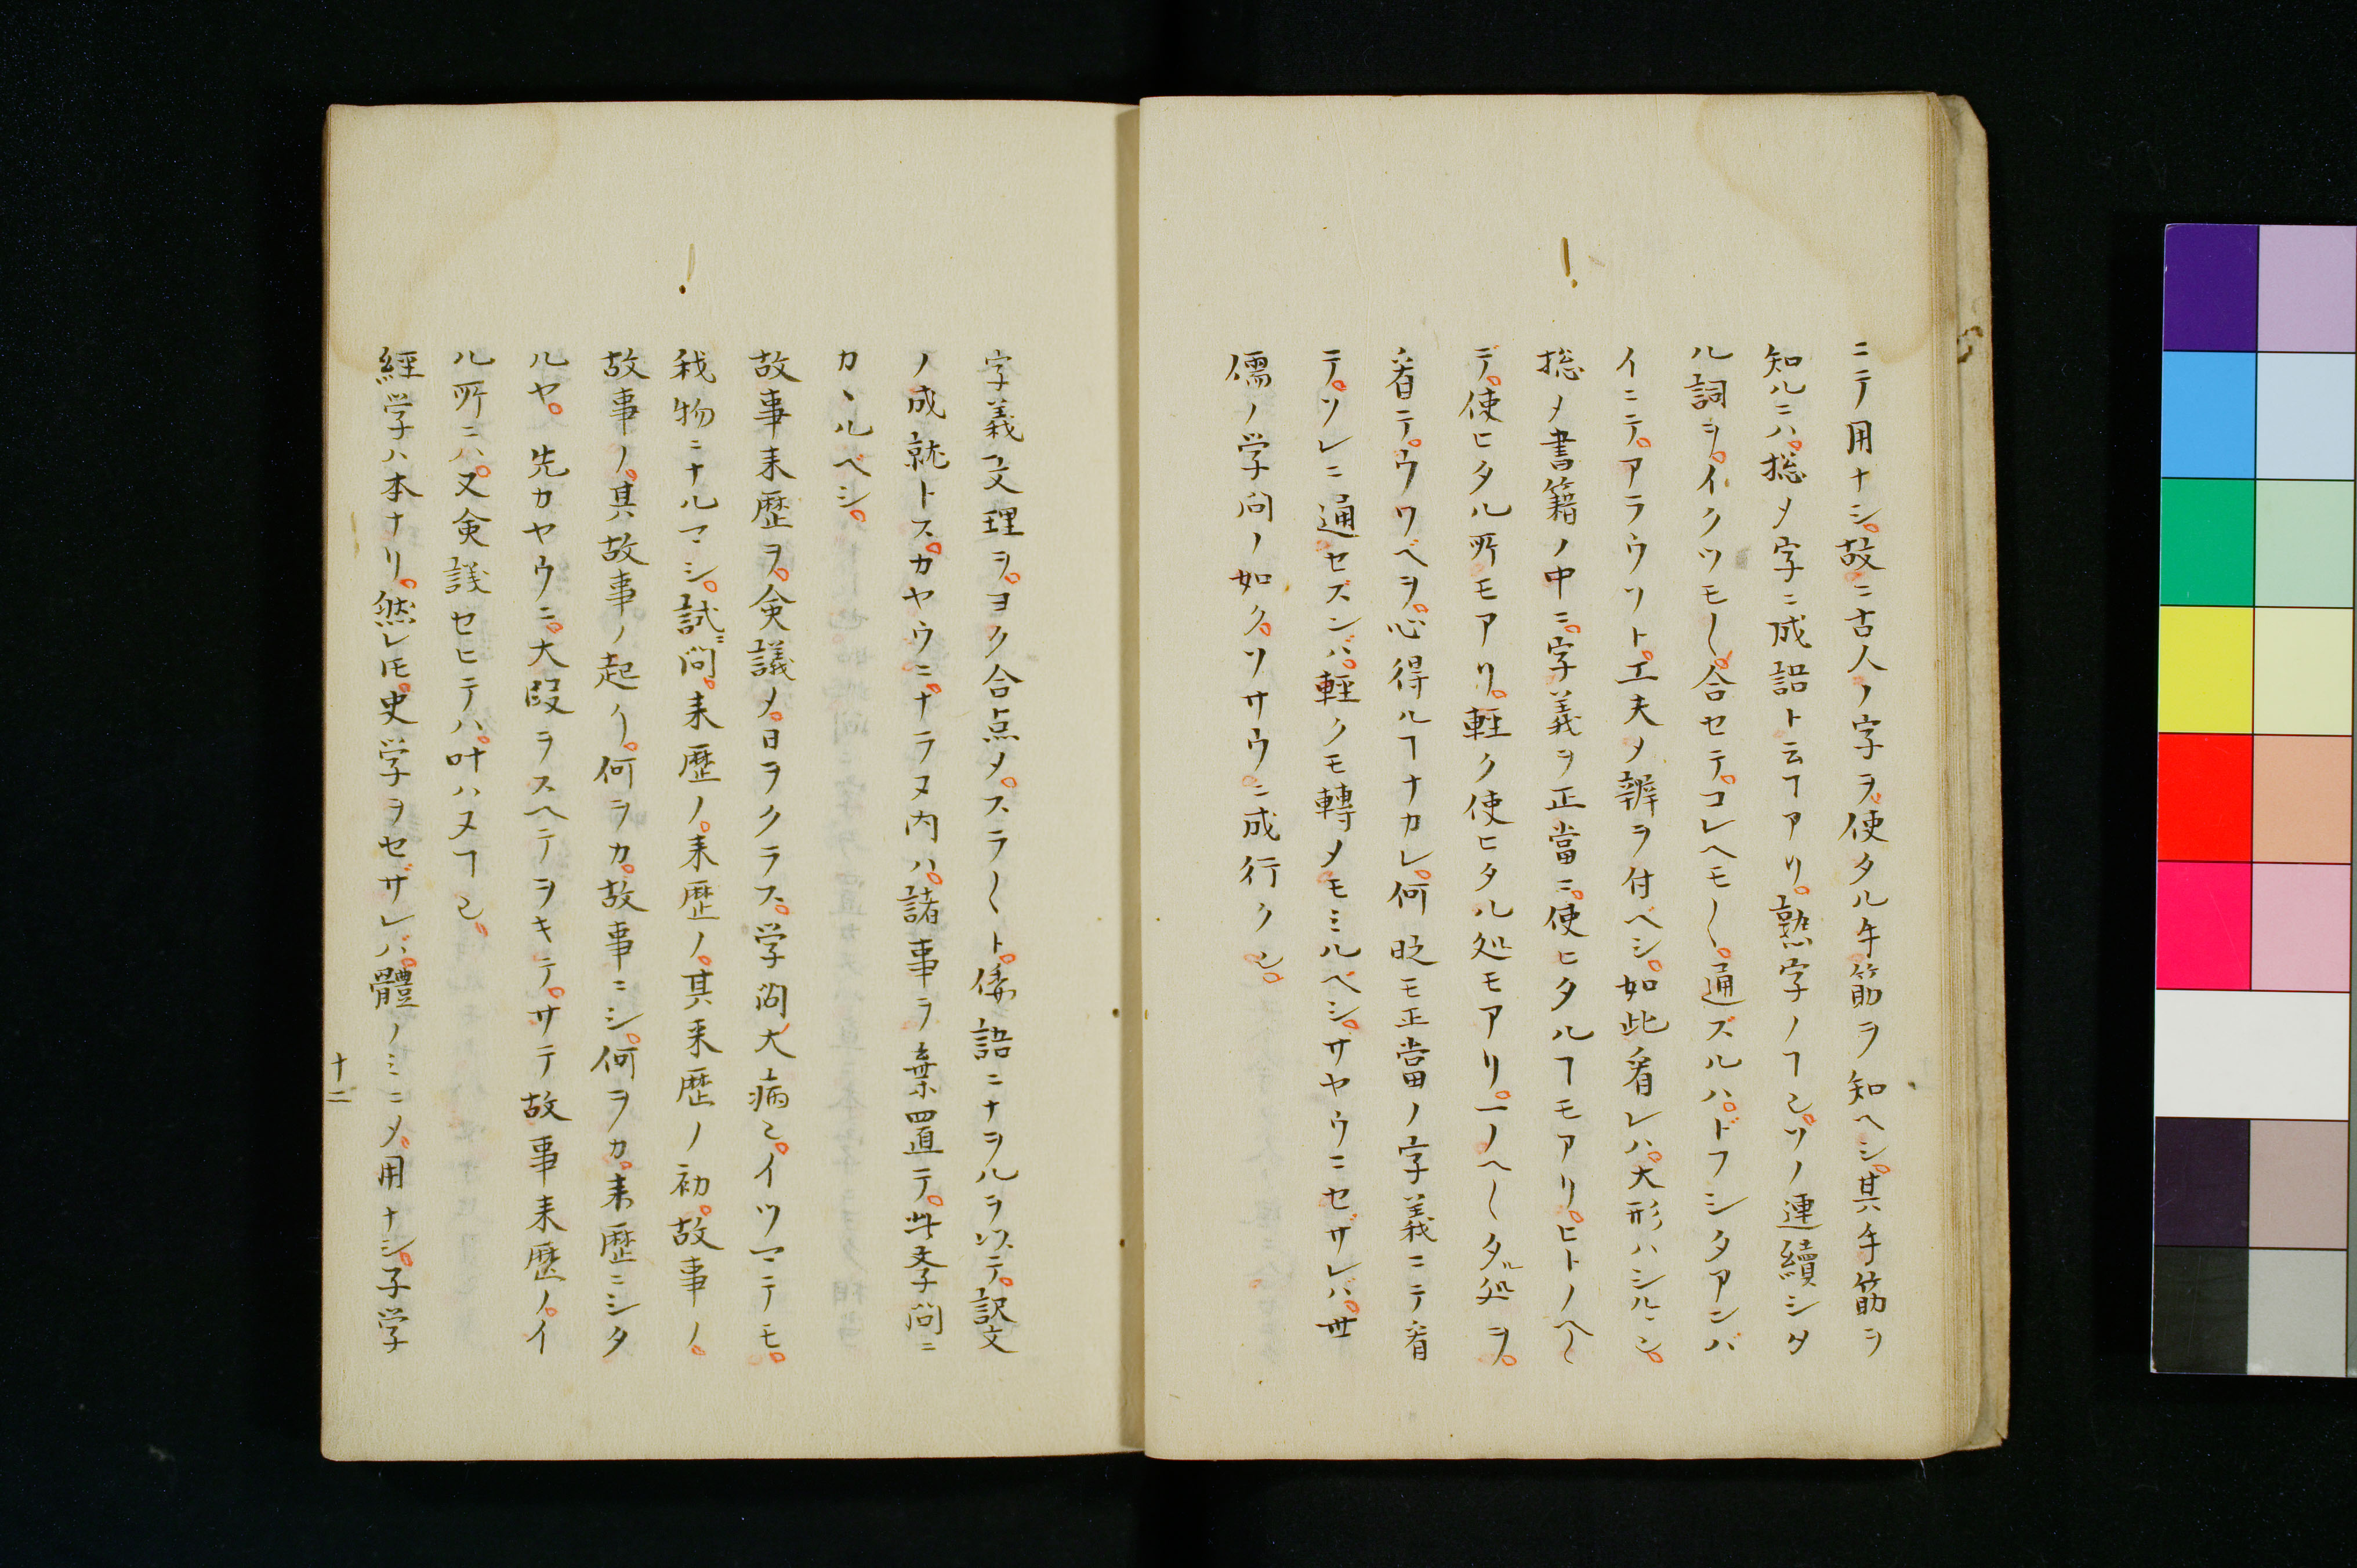 ニテ用ナシ。故ニ古人ノ字ヲ使タル手筋ヲ知ヘシ。其手筋ヲ
知ルニハ。捴〆字ニ成語ト云ヿアリ。熟字ノヿ也。ソノ連續シタ
ル詞ヲ。イクツモ〱。合セテ。コレヘモ〱。通ズルハ。ドフシタアンバ
イニテ。アラウソト。工夫〆辨ヲ付ベシ。如此看レハ。大形ハシルヽ也。
捴〆書籍ノ中ニ。字義ヲ正當ニ。使ヒタルヿモアリ。ヒトノヘ〱
デ。使ヒタル所モアリ。軽ク使ヒタル処モアリ。一ノヘ〱タル処ヲ。
看テ。ウワベヲ。心得ルヿナカレ。何時モ正當ノ字義ニテ看
テ。ソレニ通セズンバ。軽クモ轉〆モミルベシ。サヤウニセザレバ。世
儒ノ学问ノ如ク。ソサウニ成行ク也。
字義文理ヲ。ヨク合点〆。スラ〱ト。倭語ニナヲルヲ以テ。訳文
ノ成就トス。カヤウニ。ナラヌ内ハ。諸事ヲ棄置テ。此学问ニ
カヽルベシ。
故事来歴ヲ。僉議〆。日ヲクラス。学问大病也。イツマテモ。
我物ニナルマシ。試ニ问。来歴ノ。来歴ノ。其来歴ノ初。故事ノ。
故事ノ。其故事ノ起ク。何ヲカ。故事ニシ。何ヲカ。来歴ニシタ
ルヤ。先カヤウニ。大段ヲスヘテヲキテ。サテ故事来歴ノ。イ
ル所ニハ。又僉議セヒテハ。叶ハヌヿ也。
經学ハ本ナリ。然レ𪜈。史学ヲセザレバ。體ノミニ〆。用ナシ。子学
十二